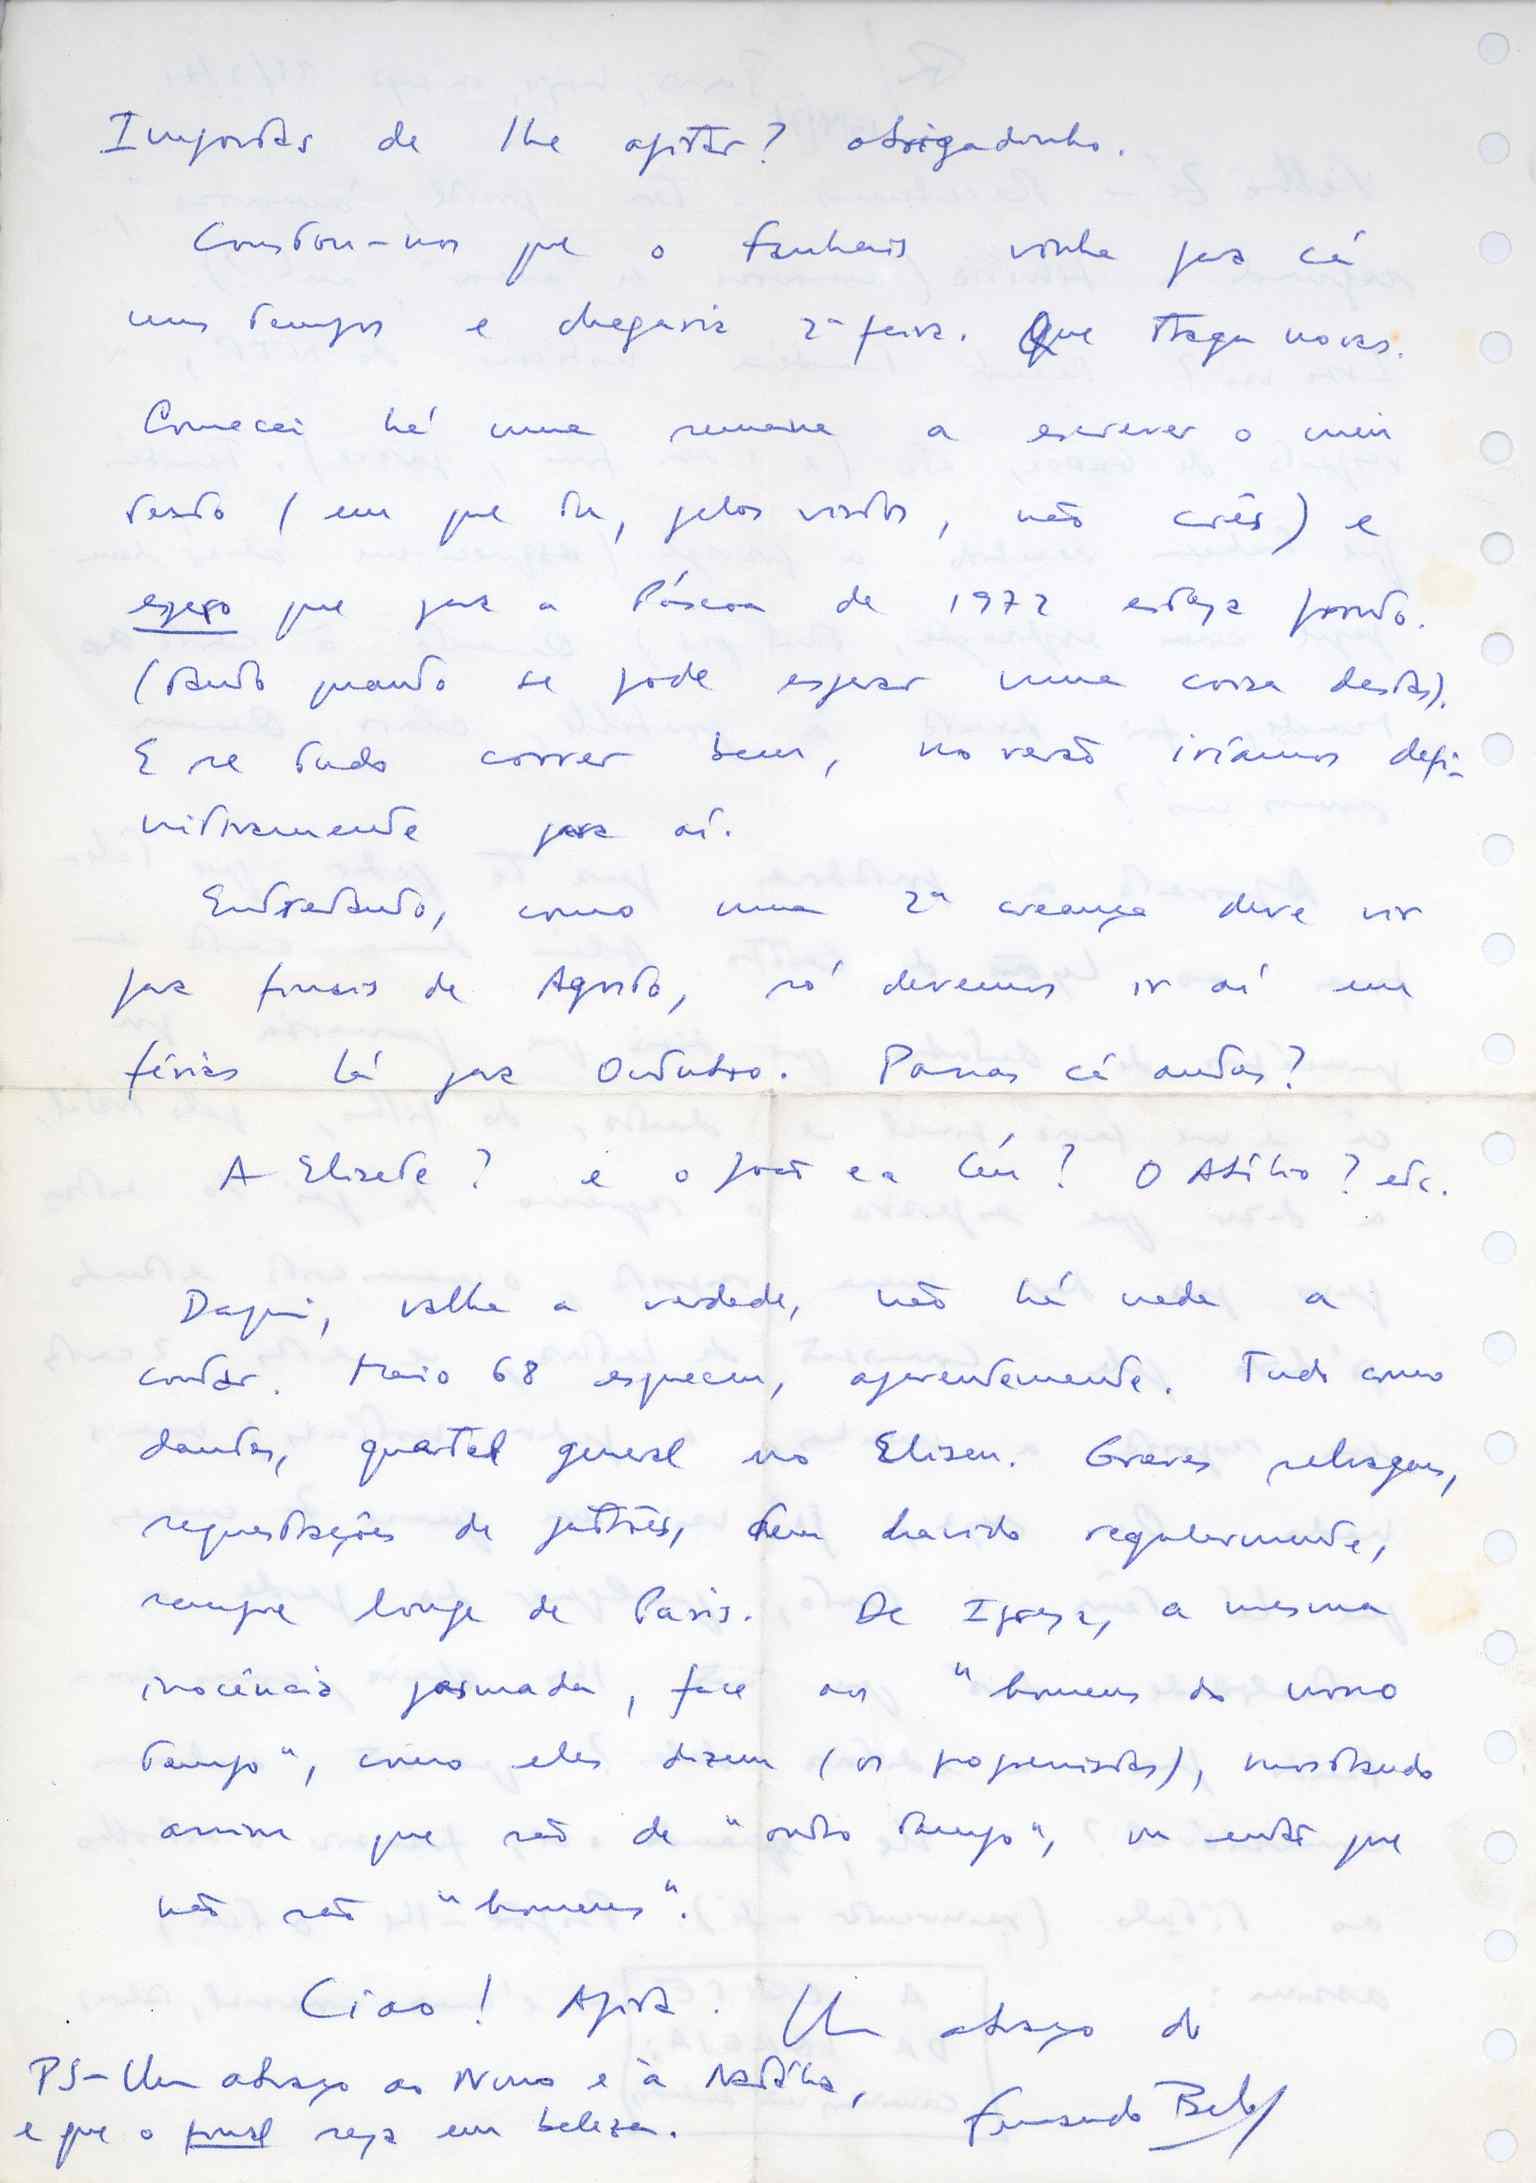 Importas de lhe apitar? obrigadinho.
Constou-nos que o Fanhais vinha para cá
uns tempos e chegaria 2ª feira. Que traga novas.
Comecei há uma semana a escrever o meu
texto (em que tu, pelos vistos, não crês) e
espero que para a Páscoa de 1972 esteja pronto.
(tanto quanto se pode esperar uma coisa destas).
E se tudo correr bem, no verão iríamos defi-
nitivamente para aí.
Entretanto, como uma 2ª creança deve vir
para finais de Agosto, só devemos ir aí em
férias lá para Outubro. Passas cá antes?
A Elisete? e o João e a Céu? O Abílio? etc.
Daqui, valha a verdade, não há nada a
contar. Maio 68 esqueceu, aparentemente. Tudo como
dantes, quartel general no Eliseu. Greves selvagens,
sequestrações de patrões, tem havido regularmente,
sempre longe de Paris. De Igreja, a mesma
inocência pasmada, face aos "homens do nosso
tempo", como eles dizem (os progressistas), mostrando
assim que são de "outro tempo", ou então que
não são "homens".
Ciao! Apita. Um abraço do
Fernando Belo
PS- Um abraço ao Nuno e à Natália,
e que o jornal seja em beleza.